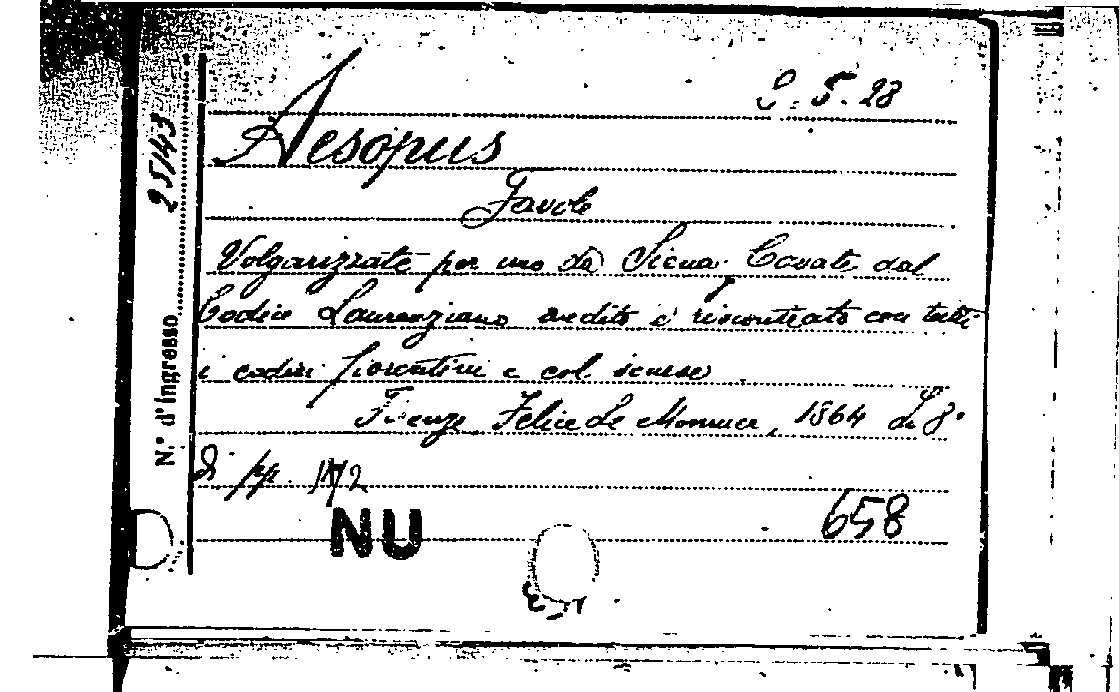 C. 5. 28
Aesopus
Favole
Volgarizzate per uno da Siena. Cavate dal
Codice Laurenziano inedito e riscontrato con tutti
i codici fiorentini e col senese
Firenze, Felice Le Monnier, 1864 In 8°
di pp.
658
NU
N.° d'Ingresso 25143